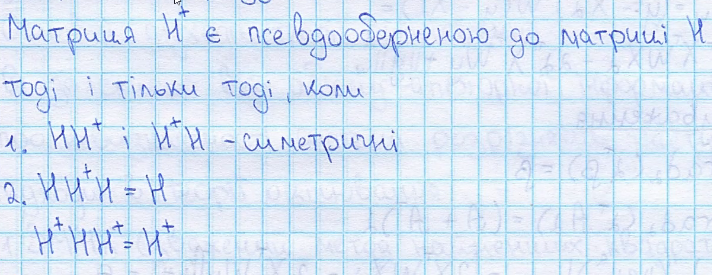 Матриця H⁺ є псевдооберненою до матриці H
тоді і тільки тоді, коли
1. HH⁺ і H⁺H – симетричні
2. HH⁺H = H
H⁺HH⁺ = H⁺